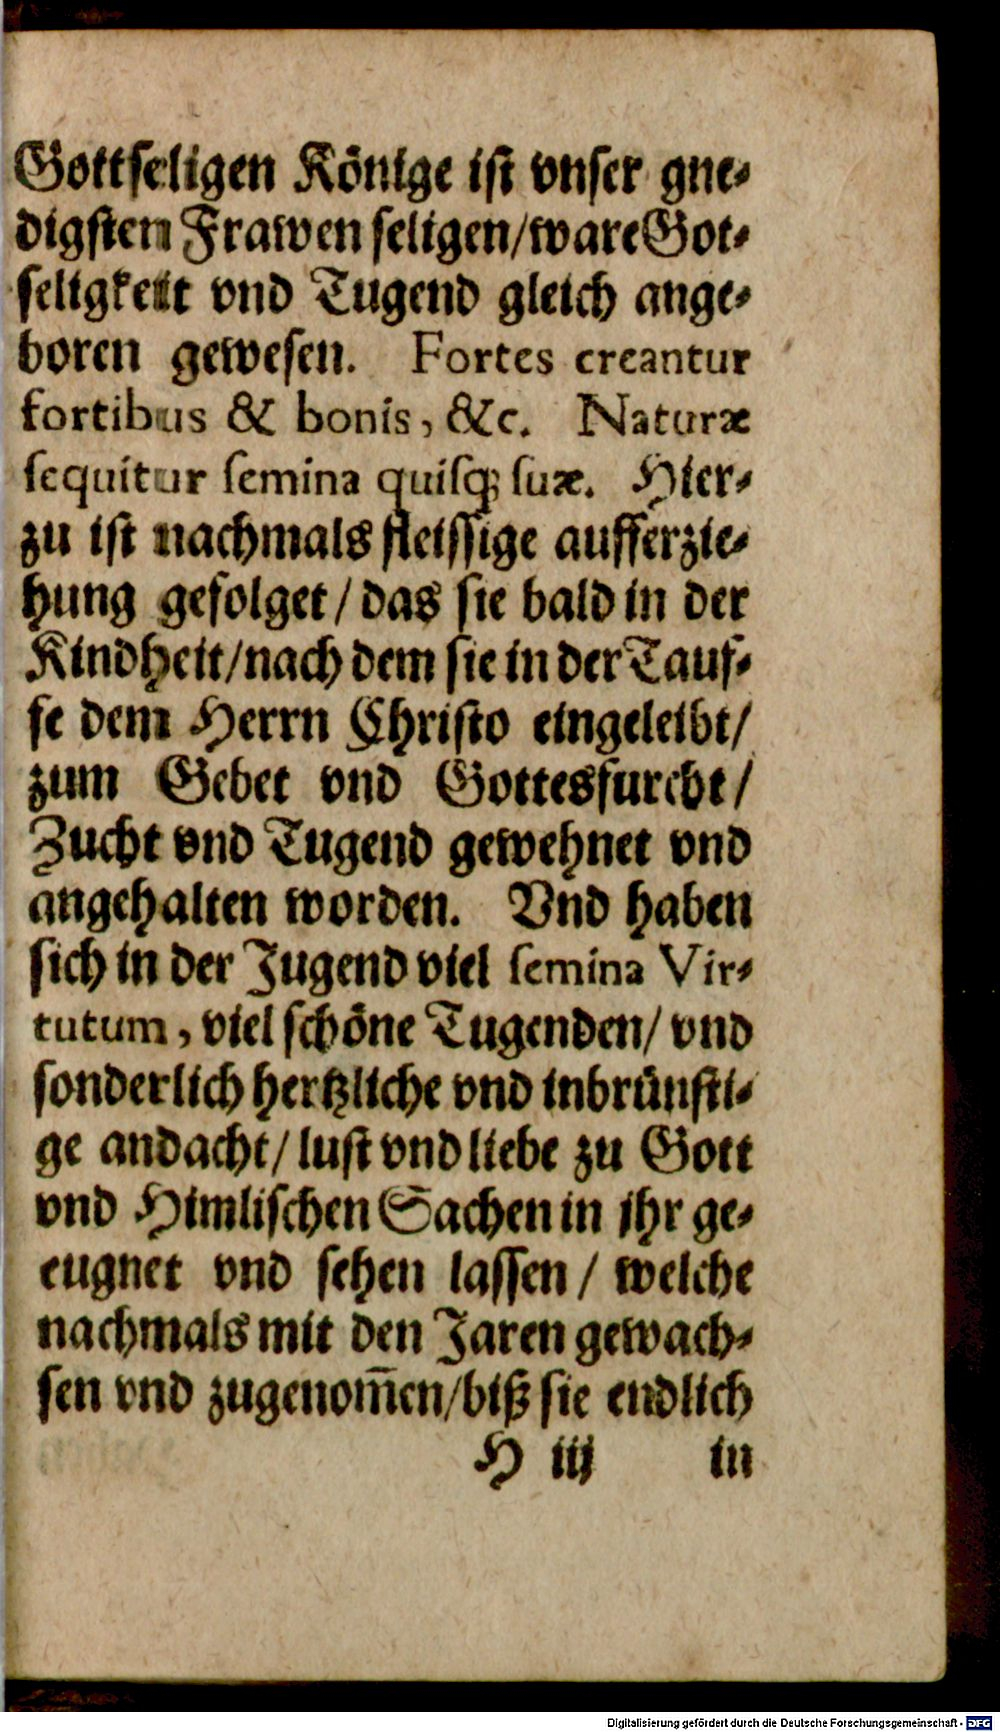 Gottseligen Könige ist vnser gne-
digsten Frawen seligen/ware Got-
seligkeit vnd Tugend gleich ange-
boren gewesen. Fortes creantur
fortibus & bonis, &c. Naturæ
sequitur semina quisq; suæ. Hier-
zu ist nachmals fleissige aufferzie-
hung gefolget / das sie bald in der
Kindheit/nach dem sie in der Tauf-
fe dem Herrn Christo eingeleibt/
zum Gebet vnd Gottesfurcht/
Zucht vnd Tugend gewehnet vnd
angehalten worden. Vnd haben
sich in der Jugend viel semina Vir-
tutum, viel schöne Tugenden/ vnd
sonderlich hertzliche vnd inbrünsti-
ge andacht/ lust vnd liebe zu Gott
vnd Himlischen Sachen in jhr ge-
eugnet vnd sehen lassen / welche
nachmals mit den Jaren gewach-
sen vnd zugenom̄en/biß sie endlich
H iij in
Digitalisierung gefördert durch die Deutsche Forschungsgemeinschaft - DFG